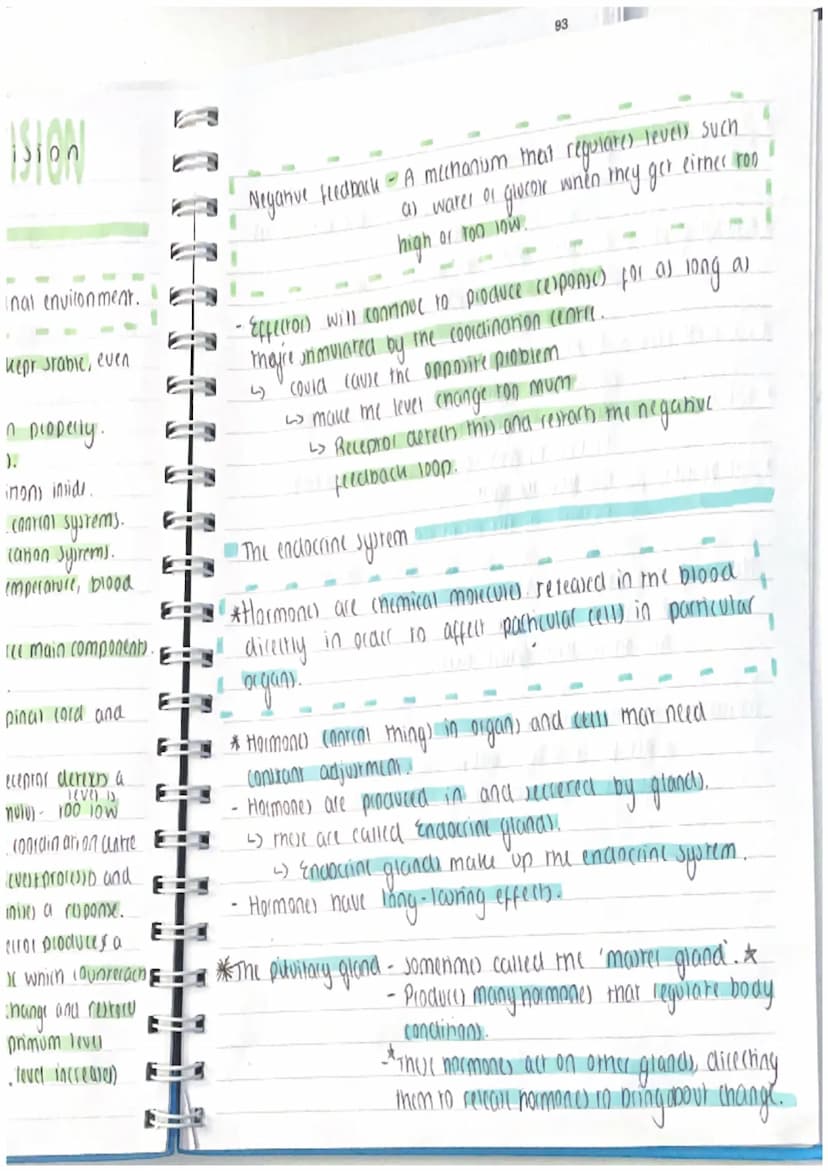 93
ISION
ision
inal environment.
kept stable, even
n properly.
).
itions inside.
control systems.
cation systems.
emperature, blood
ree main components.
pinal cord and
eceptor detects a
level is
mulus - too low
coordination centre
ives+process) and
nises a response.
ector produces a
se which counteracts
change and restores
ptimum level
. level increases)
Negative feedback - A mechanism that regulates levels such
as water or glucose when they get either too
high or too low.
- Effectors will continue to produce responses for as long as
they're stimulated by the coordination centre.
↳ could cause the opposite problem
↳ make the level change too much
↳ Receptor detects this and restarts the negative
feedback loop.
The endocrine system
*Hormones are chemical molecules released in the blood
directly in order to affect particular cells in particular
organs.
* Hormones control things in organs and cells that need
constant adjustment.
- Hormones are produced in and secreted by glands.
↳ these are called Endocrine glands.
↳ Endocrine glands make up the endocrine system.
- Hormones have long-lasting effects.
*The pituitary gland - sometimes called the 'master gland'. *
- Produces many hormones that regulate body
conditions.
-*These hormones act on other glands, directing
them to release hormones to bring about change.